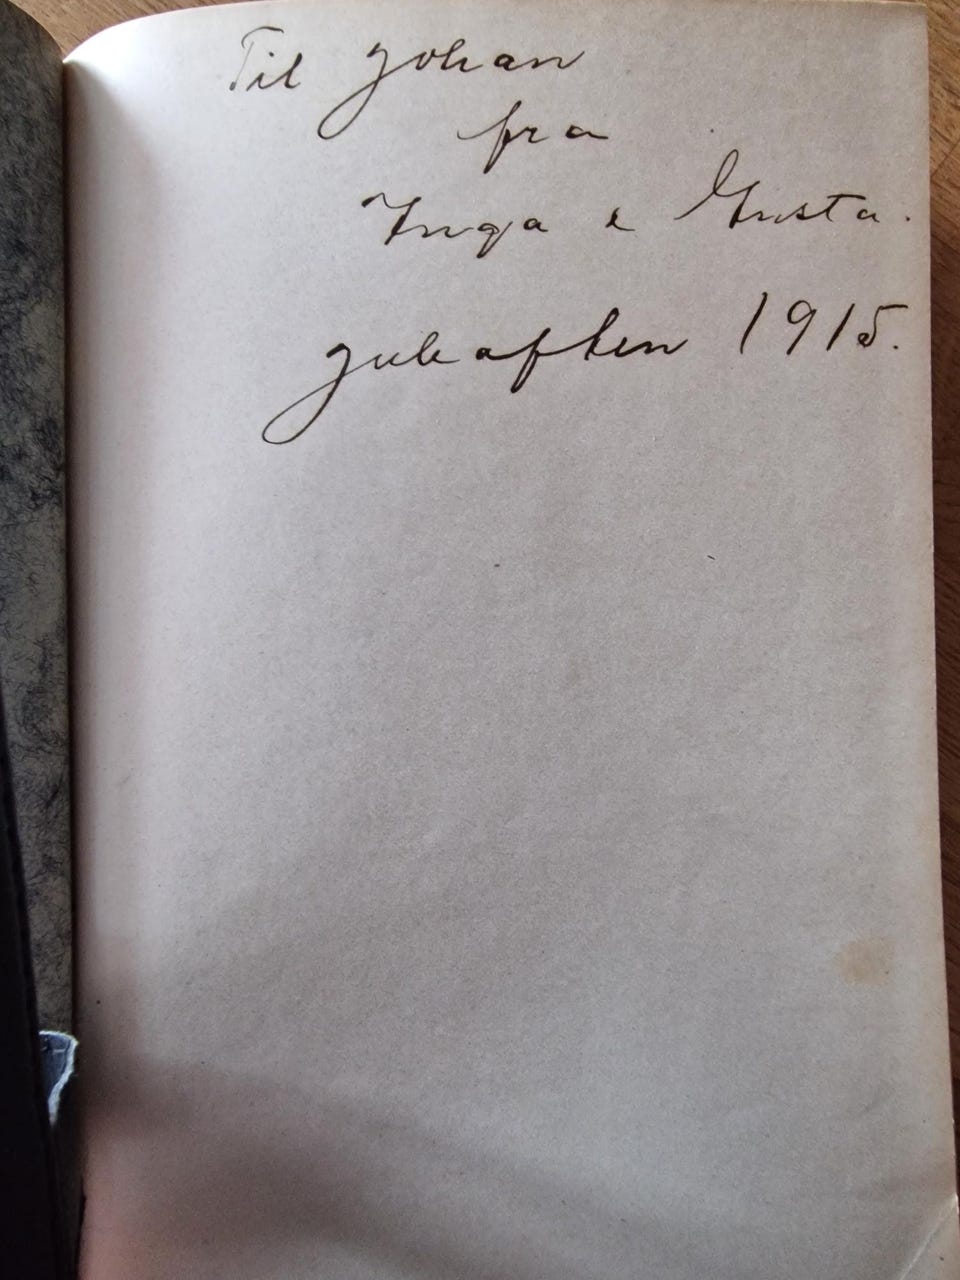 Til Johan
fra
Inga & Gusta.
Juleaften 1915.